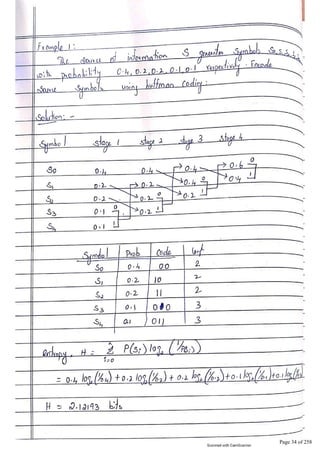 Example 1:
The source of information S generates symbols S0, S1, S2, S3, S4
with probability 0.4, 0.2, 0.2, 0.1, 0.1 respectively. Encode
same symbols using huffman coding:
Solution: -
Symbol stage 1 stage 2 stage 3 stage 4
S0 0.4 0.4 0.4 0.6 0
S1 0.2 0.2 0.4 0 0.4 1
S2 0.2 0.2 0 0.2 1
S3 0.1 0 0.2 1
S4 0.1 1
Symbol Prob Code
S0 0.4 00 2
S1 0.2 10 2
S2 0.2 11 2
S3 0.1 010 3
S4 0.1 011 3
entropy, H = Σ P(Si) log2 (1/P(Si))
i=0
= 0.4 log2(1/0.4) + 0.2 log2(1/0.2) + 0.2 log2(1/0.2) + 0.1 log2(1/0.1) + 0.1 log2(1/0.1)
H = 2.12193 bits
Scanned with CamScanner
Page 34 of 258